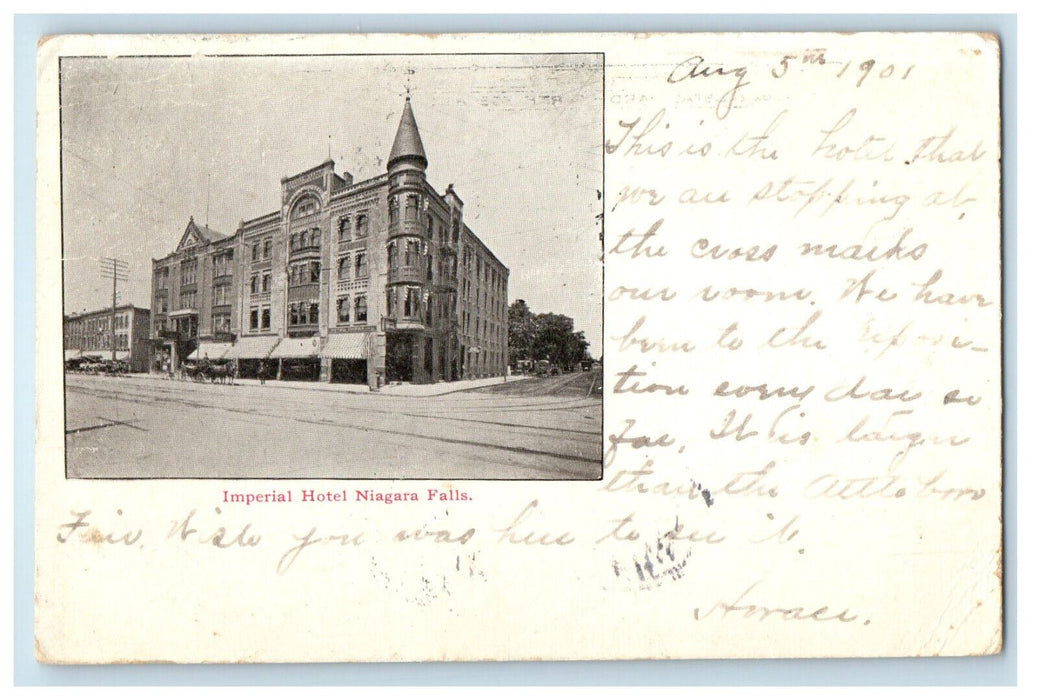 Aug 5th 1901
This is the hotel that
we are stopping at,
the cross marks
our room. We have
been to the Exposi-
tion every day so
far. It is larger
than the Attleboro
Imperial Hotel Niagara Falls.
Fair. Wish you was here to see it.
Horace.